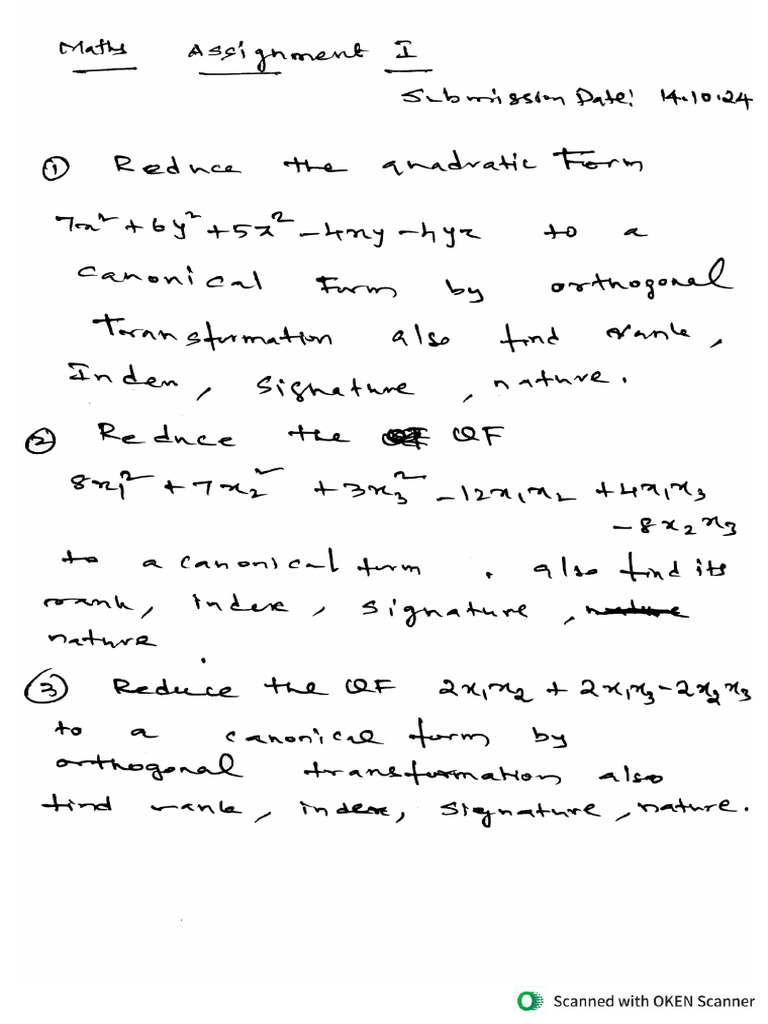 Maths Assignment I
Submission Date: 14.10.24
① Reduce the quadratic Form
7x² + 6y² + 5z² - 4xy - 4yz to a
canonical Form by orthogonal
Transformation also find rank,
Index, signature, nature.
② Reduce the QF
8x₁² + 7x₂² + 3x₃² - 12x₁x₂ + 4x₁x₃
- 8x₂x₃
to a canonical form. also find its
rank, index, signature,
nature.
③ Reduce the QF 2x₁x₂ + 2x₁x₃ - 2x₂x₃
to a canonical form by
orthogonal transformation also
find rank, index, signature, nature.
Scanned with OKEN Scanner